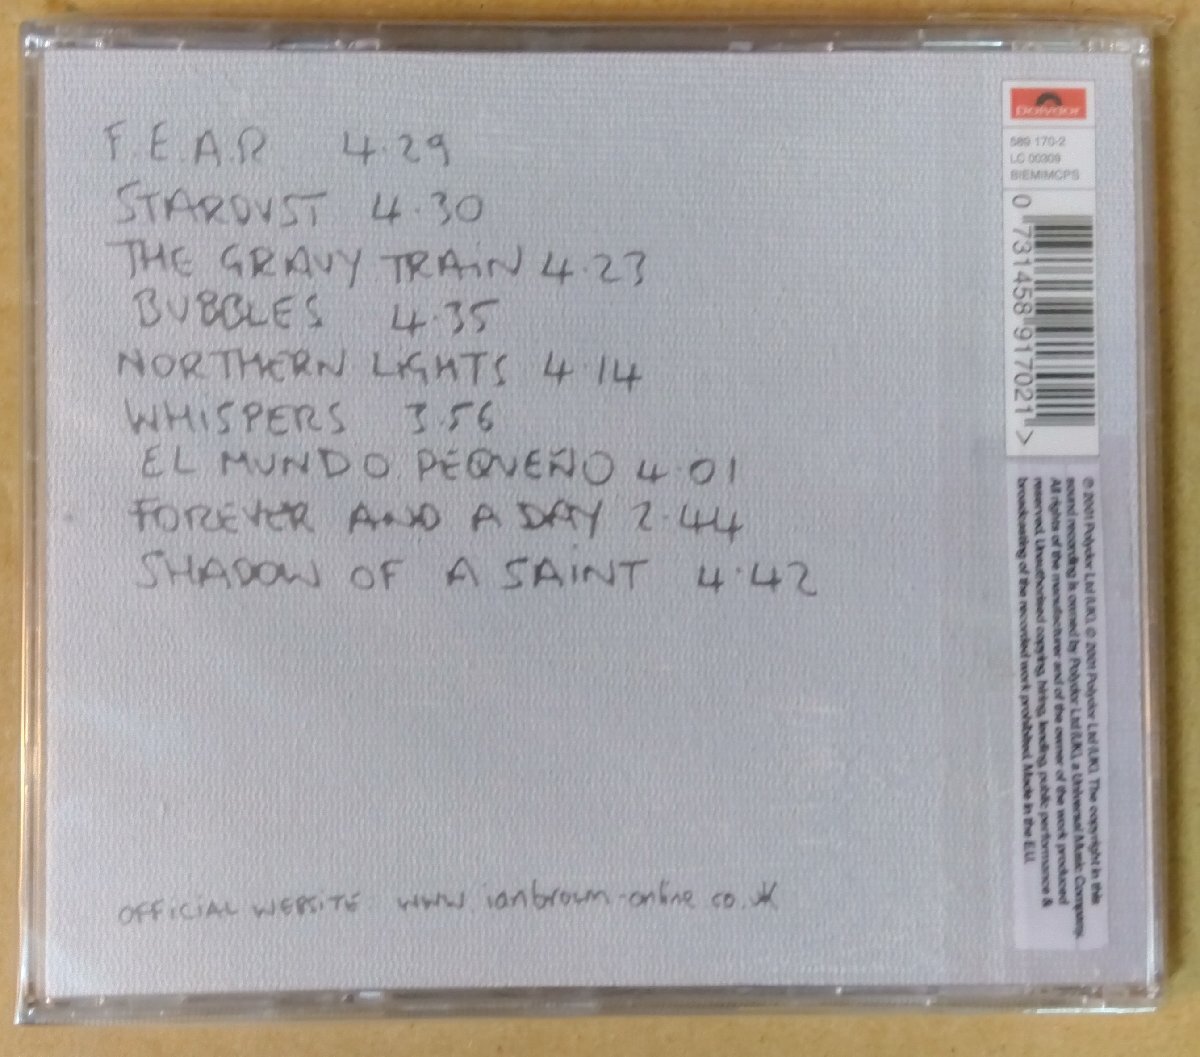 F.E.A.R 4.29
STARDUST 4.30
THE GRAVY TRAiN 4.23
BUBBLES 4.35
NORTHERN LiGHTS 4.14
WHiSPERS 3.56
EL MUNDO PEQUEÑO 4.01
FOREVER AND A DAY 2.44
SHADOW OF A SAiNT 4.42
OFFiCiAL WEBSiTE www.ianbrown-online.co.uk
polydor
589 170-2
LC 00309
BIEM/MCPS
0 731458 917021 >
℗ 2001 Polydor Ltd (UK). © 2001 Polydor Ltd (UK). The copyright in this
sound recording is owned by Polydor Ltd (UK), a Universal Music Company.
All rights of the manufacturer and of the owner of the work produced
reserved. Unauthorised copying, hiring, lending, public performance &
broadcasting of the recorded work prohibited. Made in the E.U.